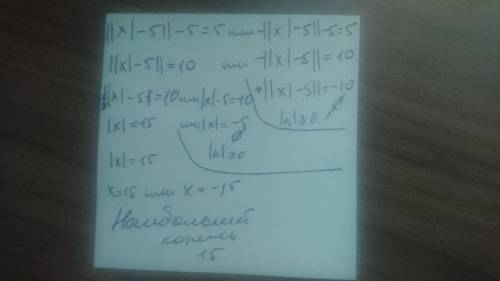 ||x|-5||-5=5 или -||x|-5||-5=5
||x|-5||=10 или -||x|-5||=10
||x|-5|=10 или |x|-5=-10 ||x|-5||=-10
|x|=15 или |x|=-5 |a|≥0 ∅
∅
|x|=15 |a|≥0
x=15 или x=-15
Наибольший
корень
15